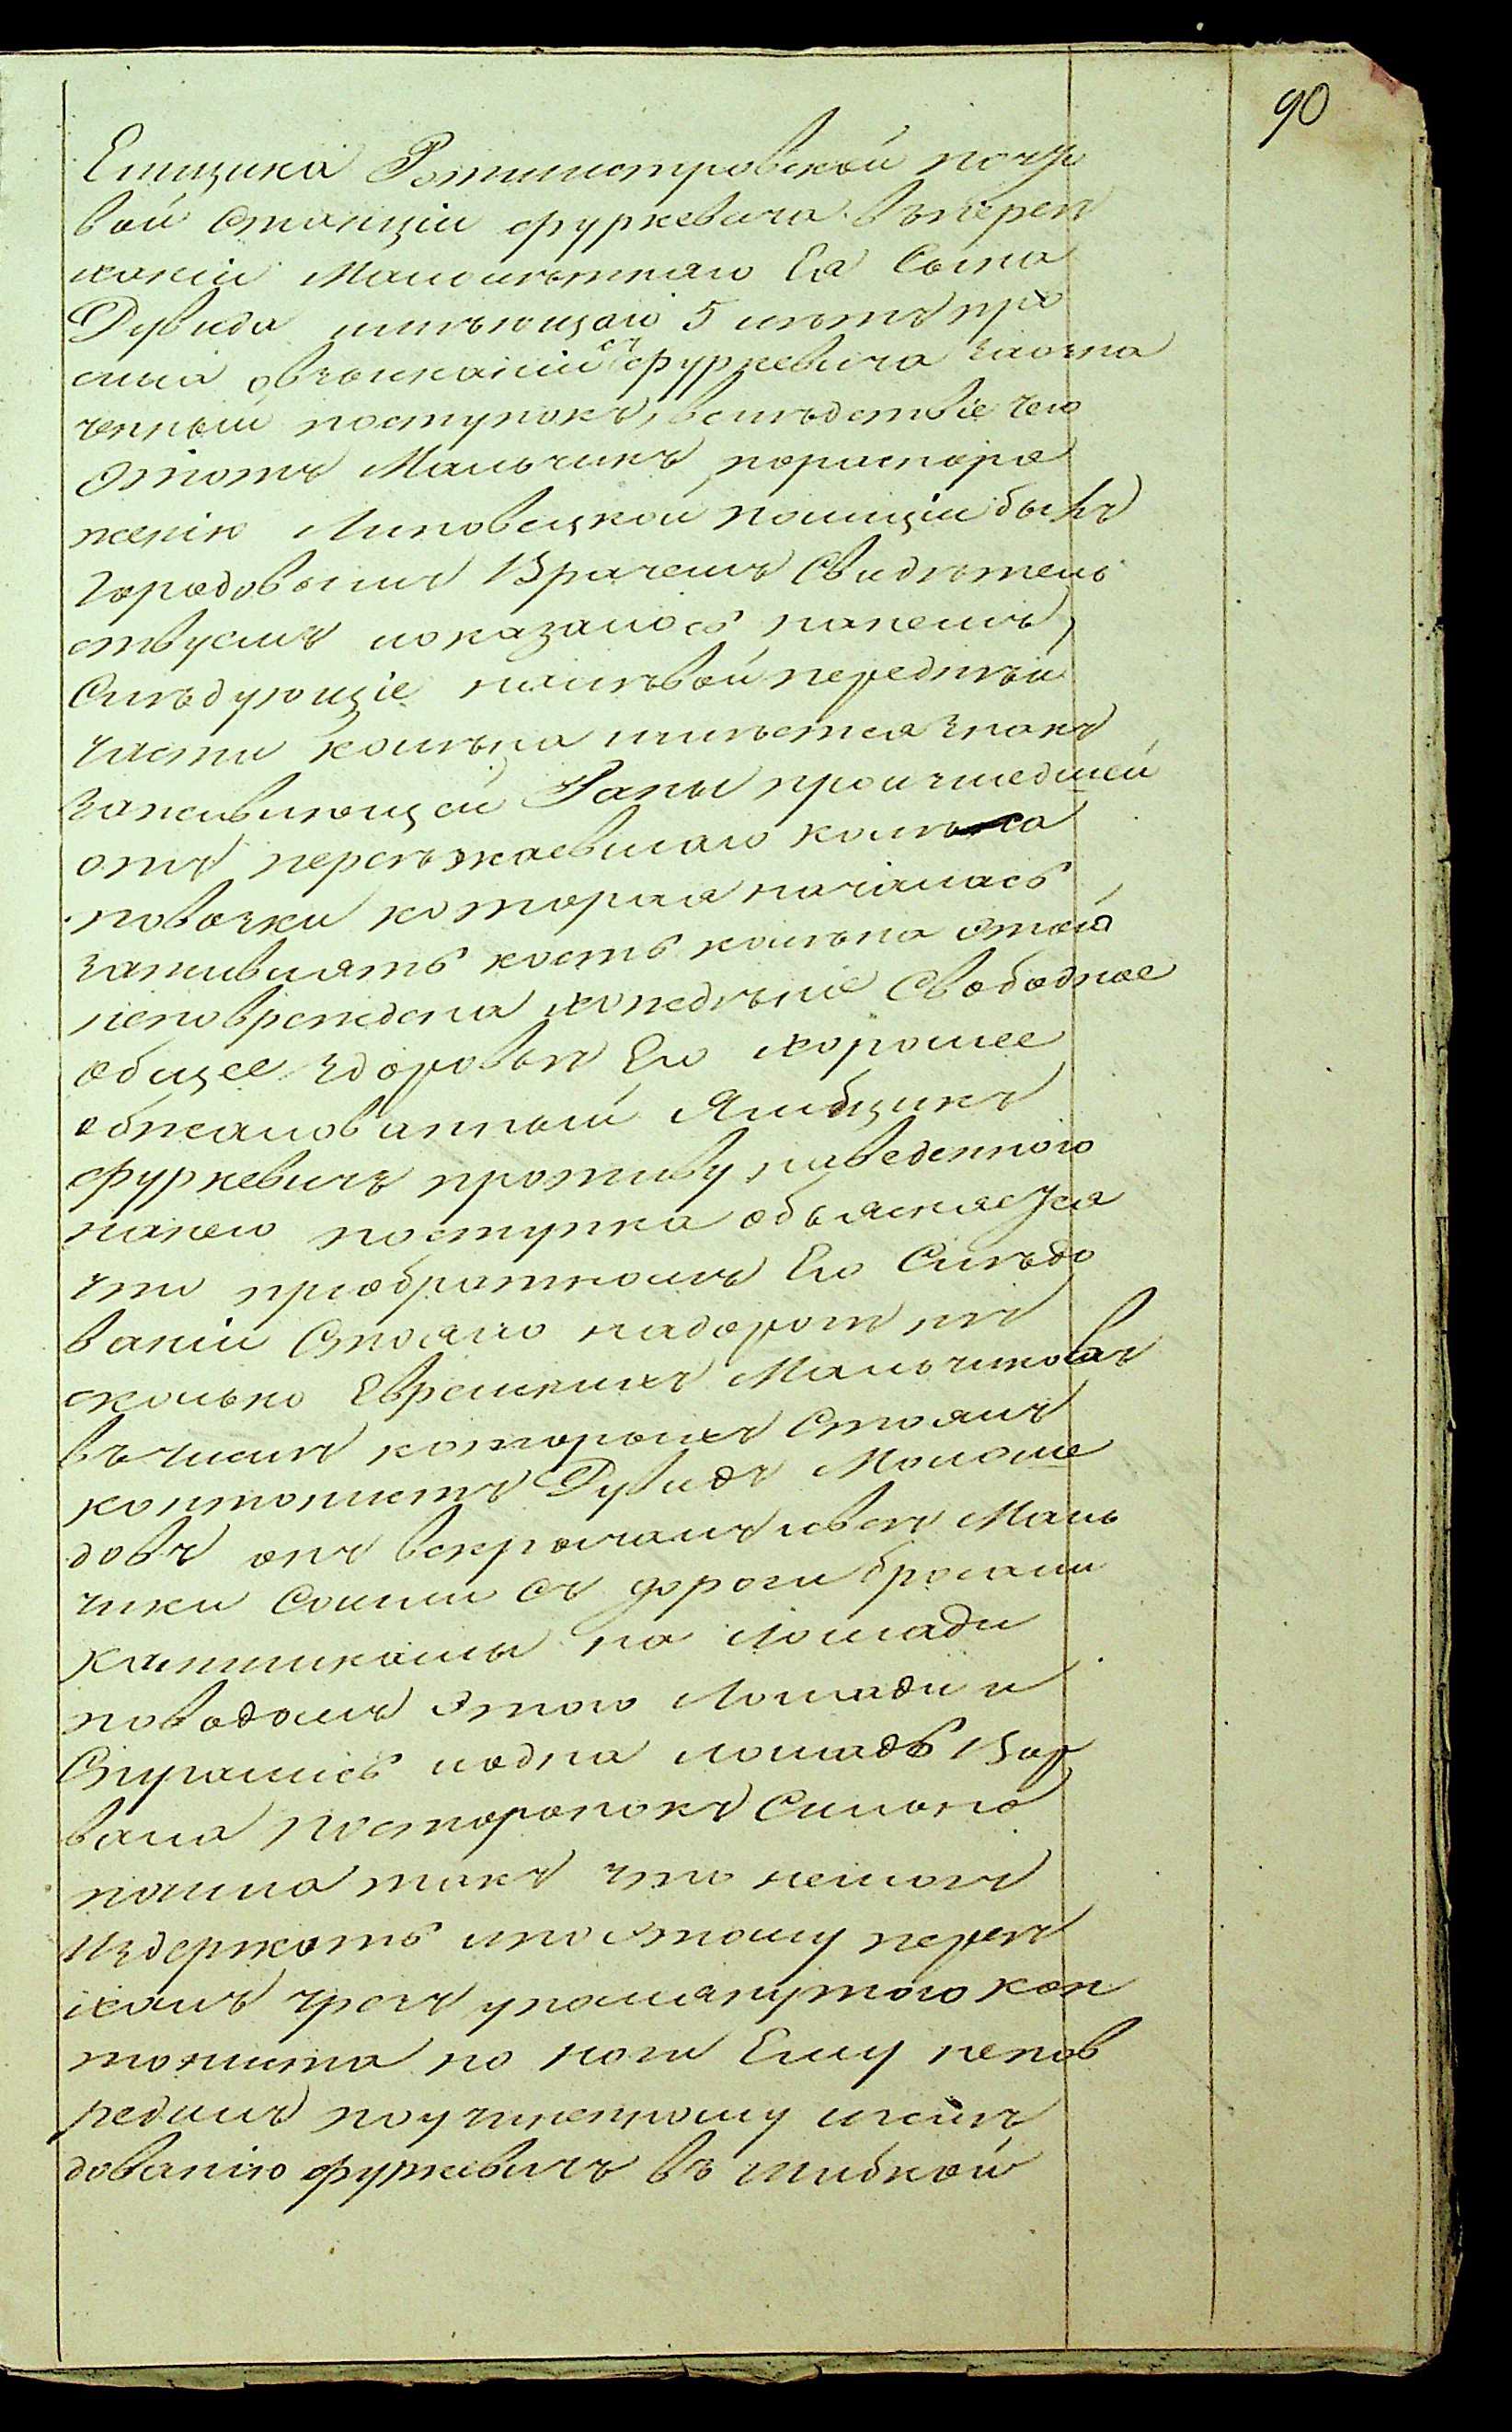 90
Емщика Ротмистровской почто
вой Станціи Фуркевича въ переѣ
ханіи Малолѣтняго Ея Сына
Дувида имѣющаго 5 лѣтъ про
сила овзысканіи съ Фуркевича заозна
ченный поступокъ, вслѣдствіе чего
Этотъ Мальчикъ пораспоря
женію Липовецкой полиціи былъ
городовымъ Врачемъ Свидѣтель
ствуемъ иоказалось нанемъ,
Слѣдующіе налѣвой передней
части колѣна имѣется знакъ
заживлющей Раны происшедшей
отъ переѣжавшаго колеса
повозки которая началась
заживлять кость колѣна этого
неповреждена хожденіе Свободное
общее здоровье Его хорошее
обжалованный Ямбщикъ
Фуркевичъ противу наведенного
нанего поступка объясняется
что приобратномъ Его Слѣдо
ваніи Стояло надорогѣ нѣ
сколько Еврейскихъ Мальчиковъ
въ числѣ которыхъ Стоялъ
контонистъ Дувидъ Мономе
довъ онъ вскрычалъ ивсѣ Маль
чики Сошли съ дороги бросали
камшками на лошади
поводомъ этого лошади и
Спугались иодна лошадь Вор
вала Посторонокъ Сильно
понила такъ что немогъ
Издержать ипоэтому переѣ
халъ чрезъ упомянутого кон
тониста но ноги Ему непов
редилъ поучиненному изслѣ
дованію Фуркевичъ въ шибкой